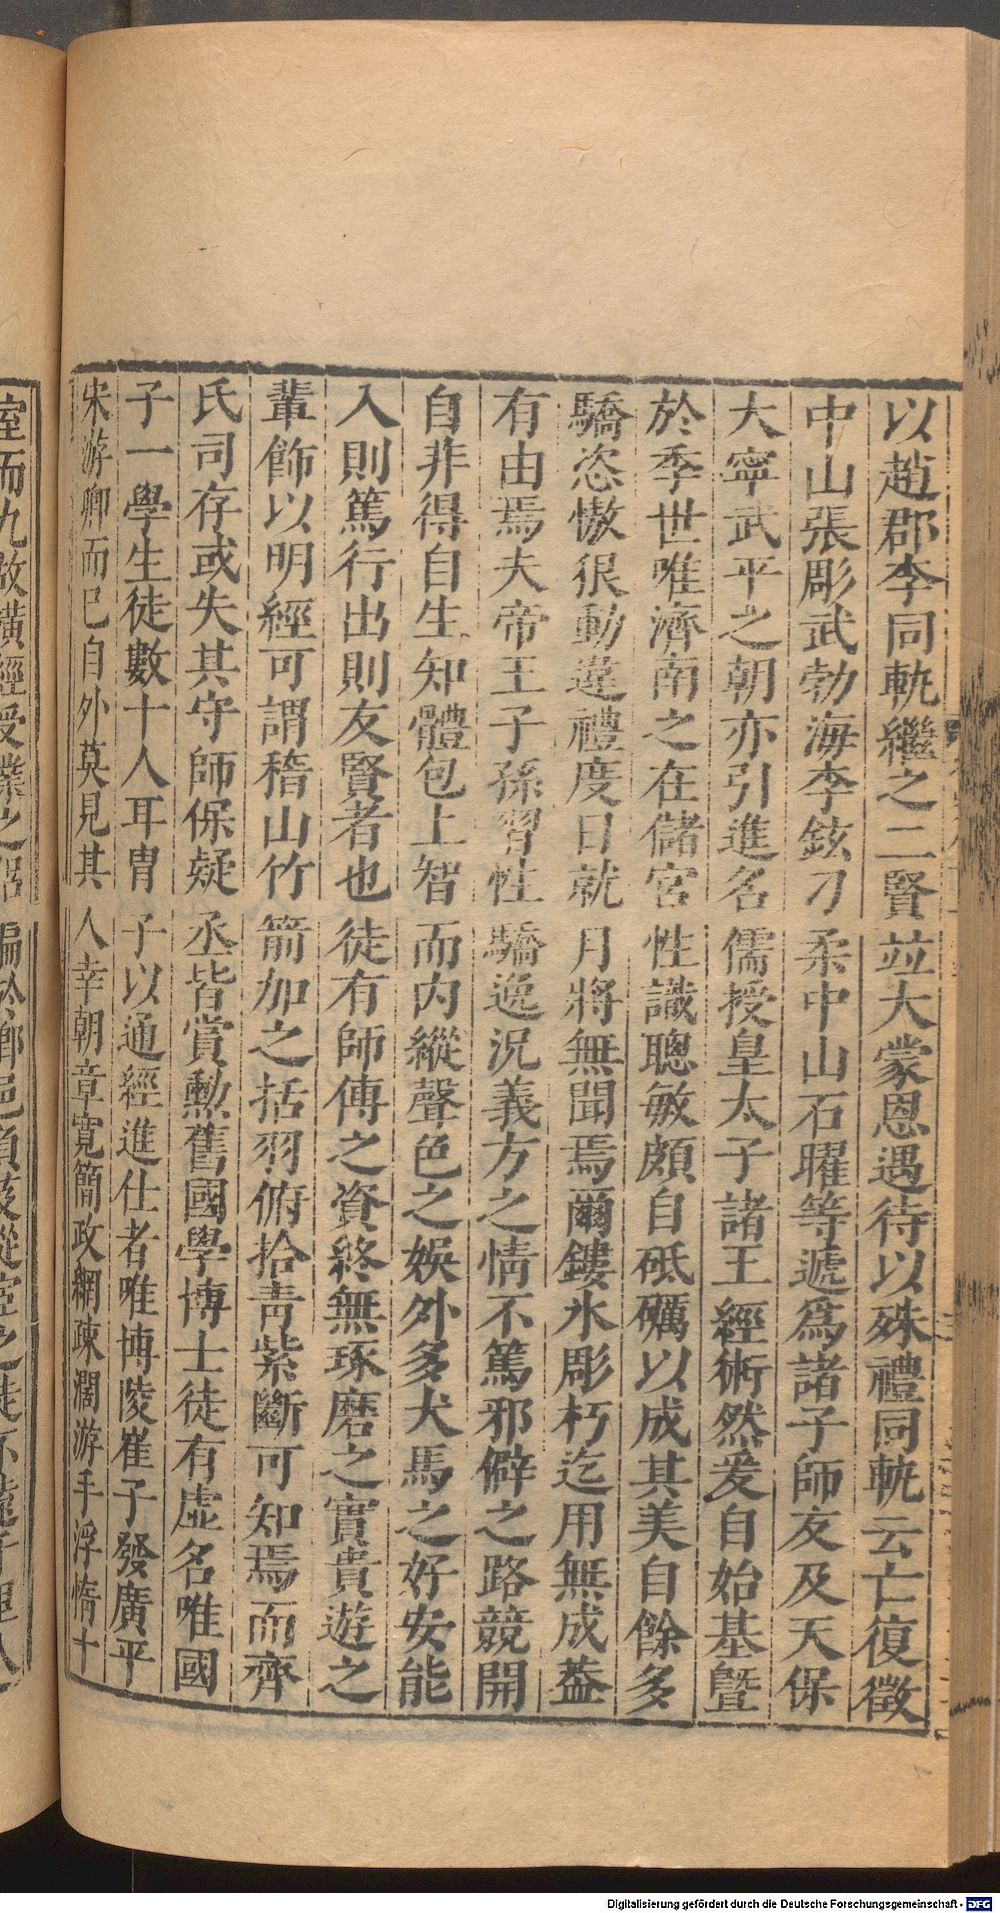 以趙郡李同軌繼之二賢竝大蒙恩遇待以殊禮同軌云亡復徵
中山張彫武勃海李鉉刁柔中山石曜等遞爲諸子師友及天保
大寧武平之朝亦引進名儒授皇太子諸王經術然爰自始基曁
於季世唯濟南之在儲宮性識聰敏頗自砥礪以成其美自餘多
驕恣慠很動違禮度日就月將無聞焉爾鏤氷彫朽迄用無成葢
有由焉夫帝王子孫習性驕逸況義方之情不篤邪僻之路競開
自非得自生知體包上智而内縱聲色之娛外多犬馬之好安能
入則篤行出則友賢者也徒有師傅之資終無琢磨之實貴遊之
輩飾以明經可謂稽山竹箭加之括羽俯拾靑紫斷可知焉而齊
氏司存或失其守師保疑丞皆賞勲舊國學博士徒有虛名唯國
子一學生徒數十人耳胄子以通經進仕者唯博陵崔子發廣平
宋游卿而已自外莫見其人幸朝章寛簡政網疎濶游手浮惰十
室而九故橫經受業之侶徧於鄕邑負笈從宦之徒不遠千里入
Digitalisierung gefördert durch die Deutsche Forschungsgemeinschaft - DFG